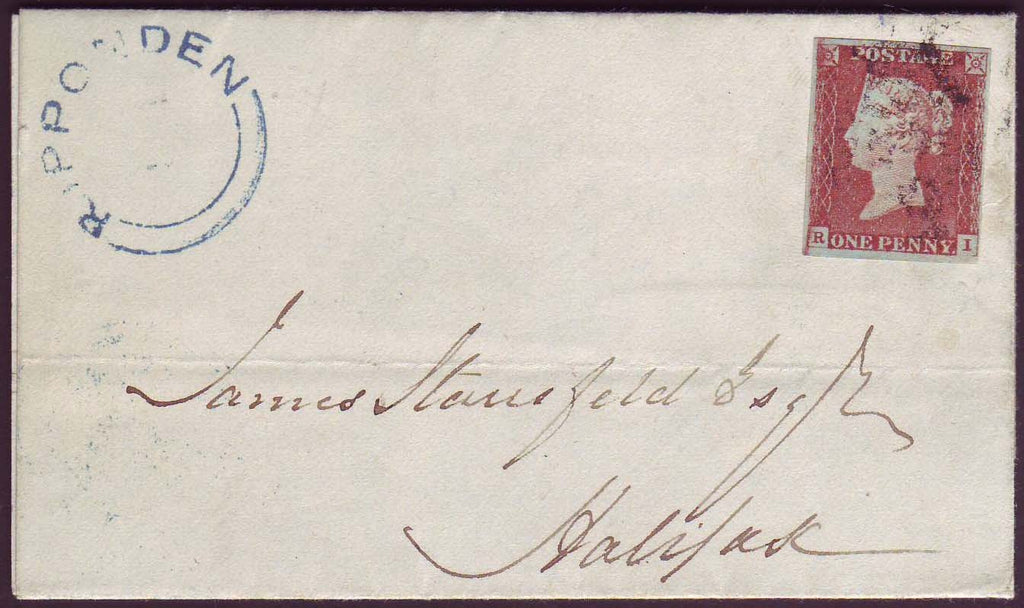 RIPPONDEN
POSTAGE
R ONE PENNY. I
James Stansfeld Esqr
Halifax